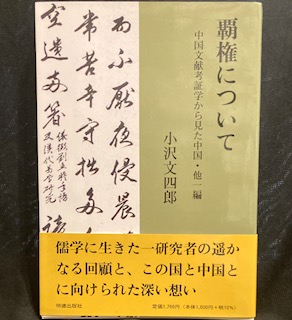 覇権について
中国文献考証学から見た中国・他一編
小沢文四郎
而不厭夜侵晨
常苦辛守拙多
空遺
又漢代易学研究
儒学に生きた一研究者の遥か
なる回顧と、この国と中国と
に向けられた深い想い
明徳出版社 定価1,760円（本体1,600円＋税10%）